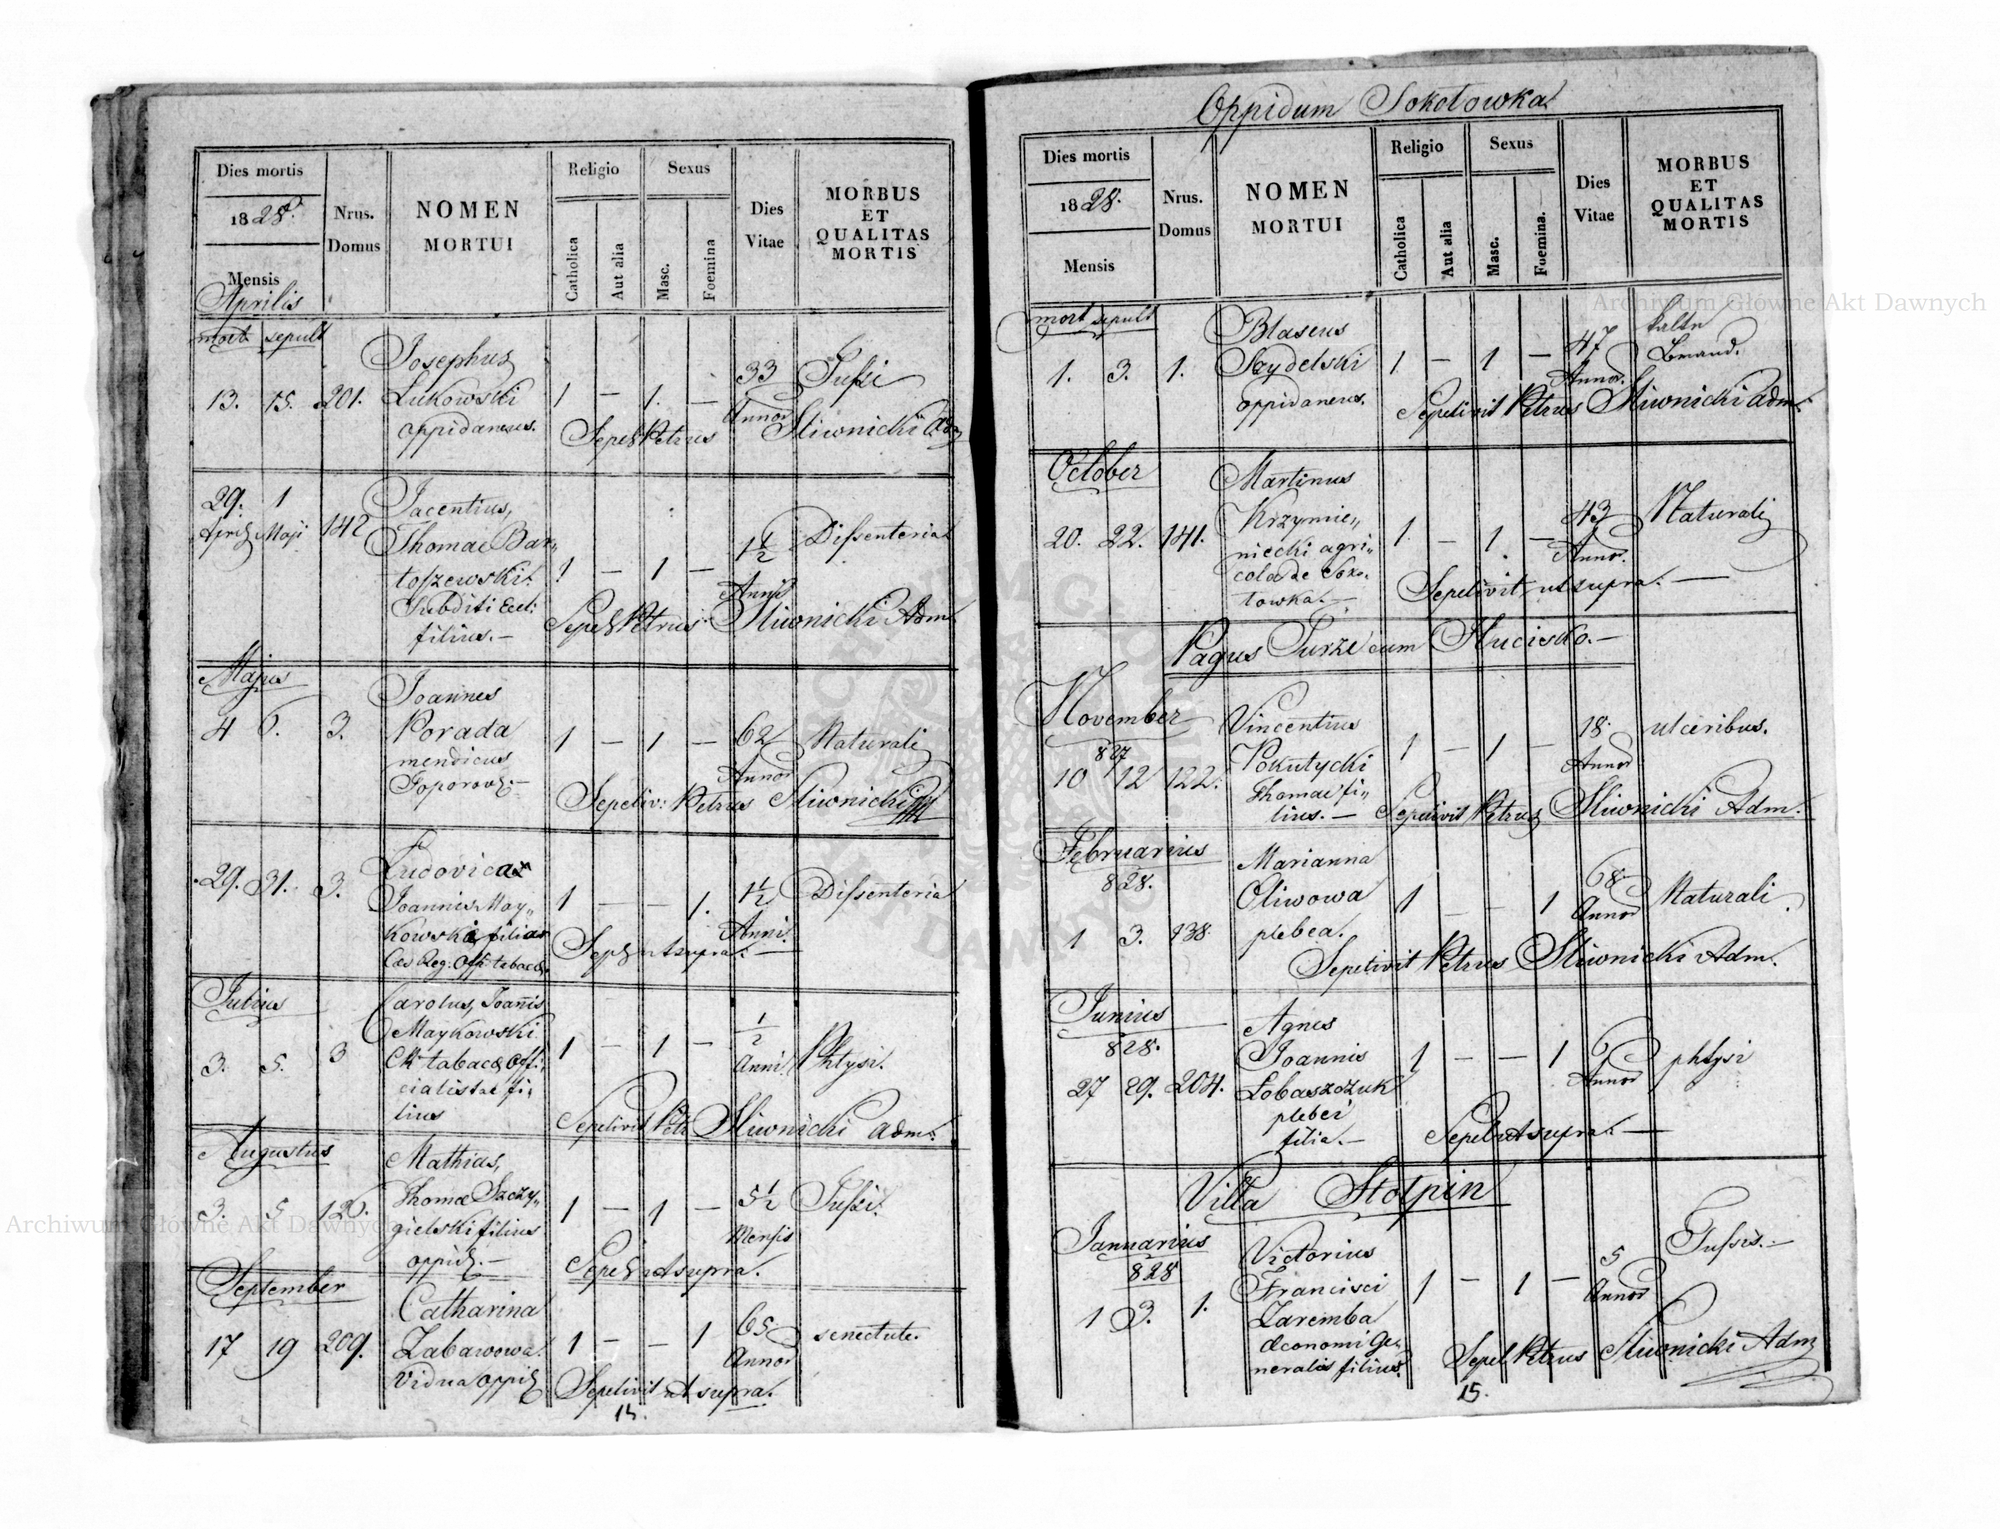 Dies mortis
1828.
Mensis
Aprilis
Nrus.
Domus
NOMEN
MORTUI
Religio
Catholica
Aut alia
Sexus
Masc.
Foemina
Dies
Vitae
MORBUS
ET
QUALITAS
MORTIS
mort sepult
13. 15. 201.
Josephus
Lukowski
oppidaneus.
1 — 1. —
33
Annor
Tussi
Sepel Petrus Sliwnicki Adm
29. 1
Aprilis Maji 142
Jacentius,
Thomae Bar„
toszewski.
Subditi Eccli
filius.—
1 — 1 —
1½
Anni
Dissenteria
Sepel Petrus Sliwnicki Adm
Majus
4 6. 3.
Joannes
Porada
mendicus
Toporov.—
1 — 1 —
62
Annor
Naturali
Sepeliv: Petrus Sliwnicki
29. 31. 3.
Ludovica
Joannis May„
kowski filia
Caes Reg. Off. tabac
1 — — 1.
1½
Anni.
Dissenteria
Sepel ut supra.—
Julius
3. 5. 3
Carolus, Joannis
Maykowski
CR tabac Offi„
cialistae fi„
lius
1 — 1 —
½
Anni.
Phtysi.
Sepelivit Petr Sliwnicki Adm.
Augustus
3. 5 126.
Mathias,
Thomae Szczy„
gielski filius
oppid.—
1 — 1 —
5½
Mensis
Tussi.
Sepel ut supra.
September
17 19 209.
Catharina
Zabawowa.
Vidua oppid
1 — — 1
65
Annor
senectute.
Sepelivit ut supra.
Oppidum Sokołowka
Dies mortis
1828.
Mensis
Nrus.
Domus
NOMEN
MORTUI
Religio
Catholica
Aut alia
Sexus
Masc.
Foemina.
Dies
Vitae
MORBUS
ET
QUALITAS
MORTIS
mort sepult
1. 3. 1.
Blaseus
Szydelski
oppidaneus.
1 — 1 —
47
Annor.
kalte
Brand.
Sepelivit Petrus Sliwnicki Adm.
October
20. 22. 141.
Martinus
Krzymie„
niecki agri„
cola de Soko„
łowka.—
1. — 1. —
43
Annor.
Naturali
Sepelivit ut supra.—
Pagus Turze cum Hucisko.—
November
827
10 12 122.
Vincentius
Pokutycki
Thomae fi„
lius.—
1 — 1 —
18.
Annor
ulceribus.
Sepelivit Petrus Sliwnicki Adm.
Februarius
828.
1 3. 138.
Marianna
Oliwowa
plebea.
1 — — 1
68.
Annor
Naturali.
Sepelivit Petrus Sliwnicki Adm.
Junius
828.
27 29. 204.
Agnes
Joannis
Łobaszczuk
plebei
filia.—
1 — — 1
6
Annor
phtysi
Sepel ut supra.—
Villa Stołpin
Januarius
828
1 3. 1.
Victorius
Francisci
Zaremba
Œconomi Ge„
neralis filius.
1 — 1 —
5
Annor
Tussis.—
Sepel Petrus Sliwnicki Adm
15.
Archiwum Główne Akt Dawnych
Archiwum Główne Akt Dawnych